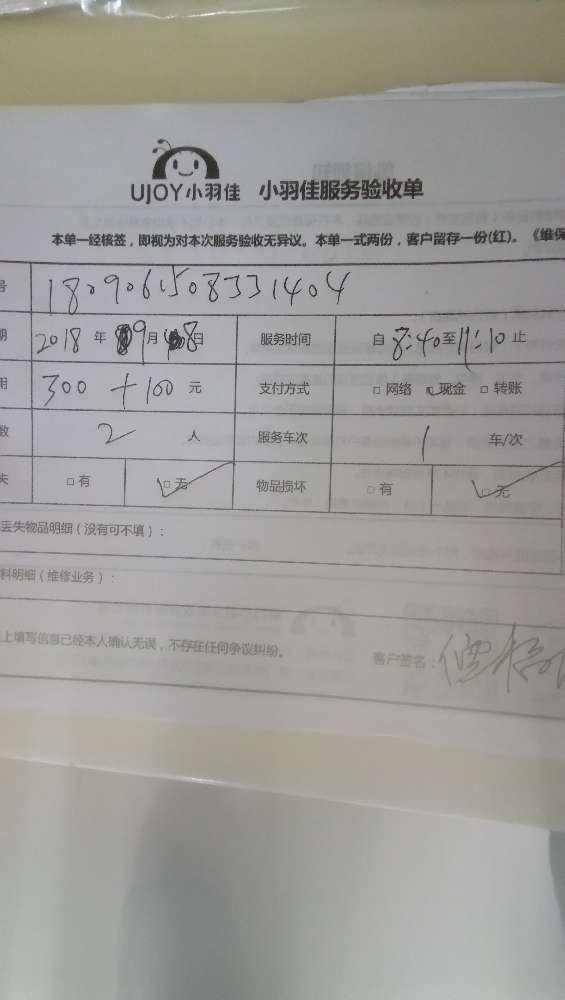 UJOY小羽佳 小羽佳服务验收单
本单一经核签，即视为对本次服务验收无异议。本单一式两份，客户留存一份(红)。《维保
号 1809061508331404
期 2018 年 9月 8日 服务时间 自 8:40至11:10止
用 300 + 100 元 支付方式 □ 网络 □ 现金 □ 转账
数 2 人 服务车次 1 车/次
失 □ 有 □ 无 物品损坏 □ 有 □ 无
丢失物品明细（没有可不填）：
料明细（维修业务）：
上填写信息已经本人确认无误，不存在任何争议纠纷。 客户签名：